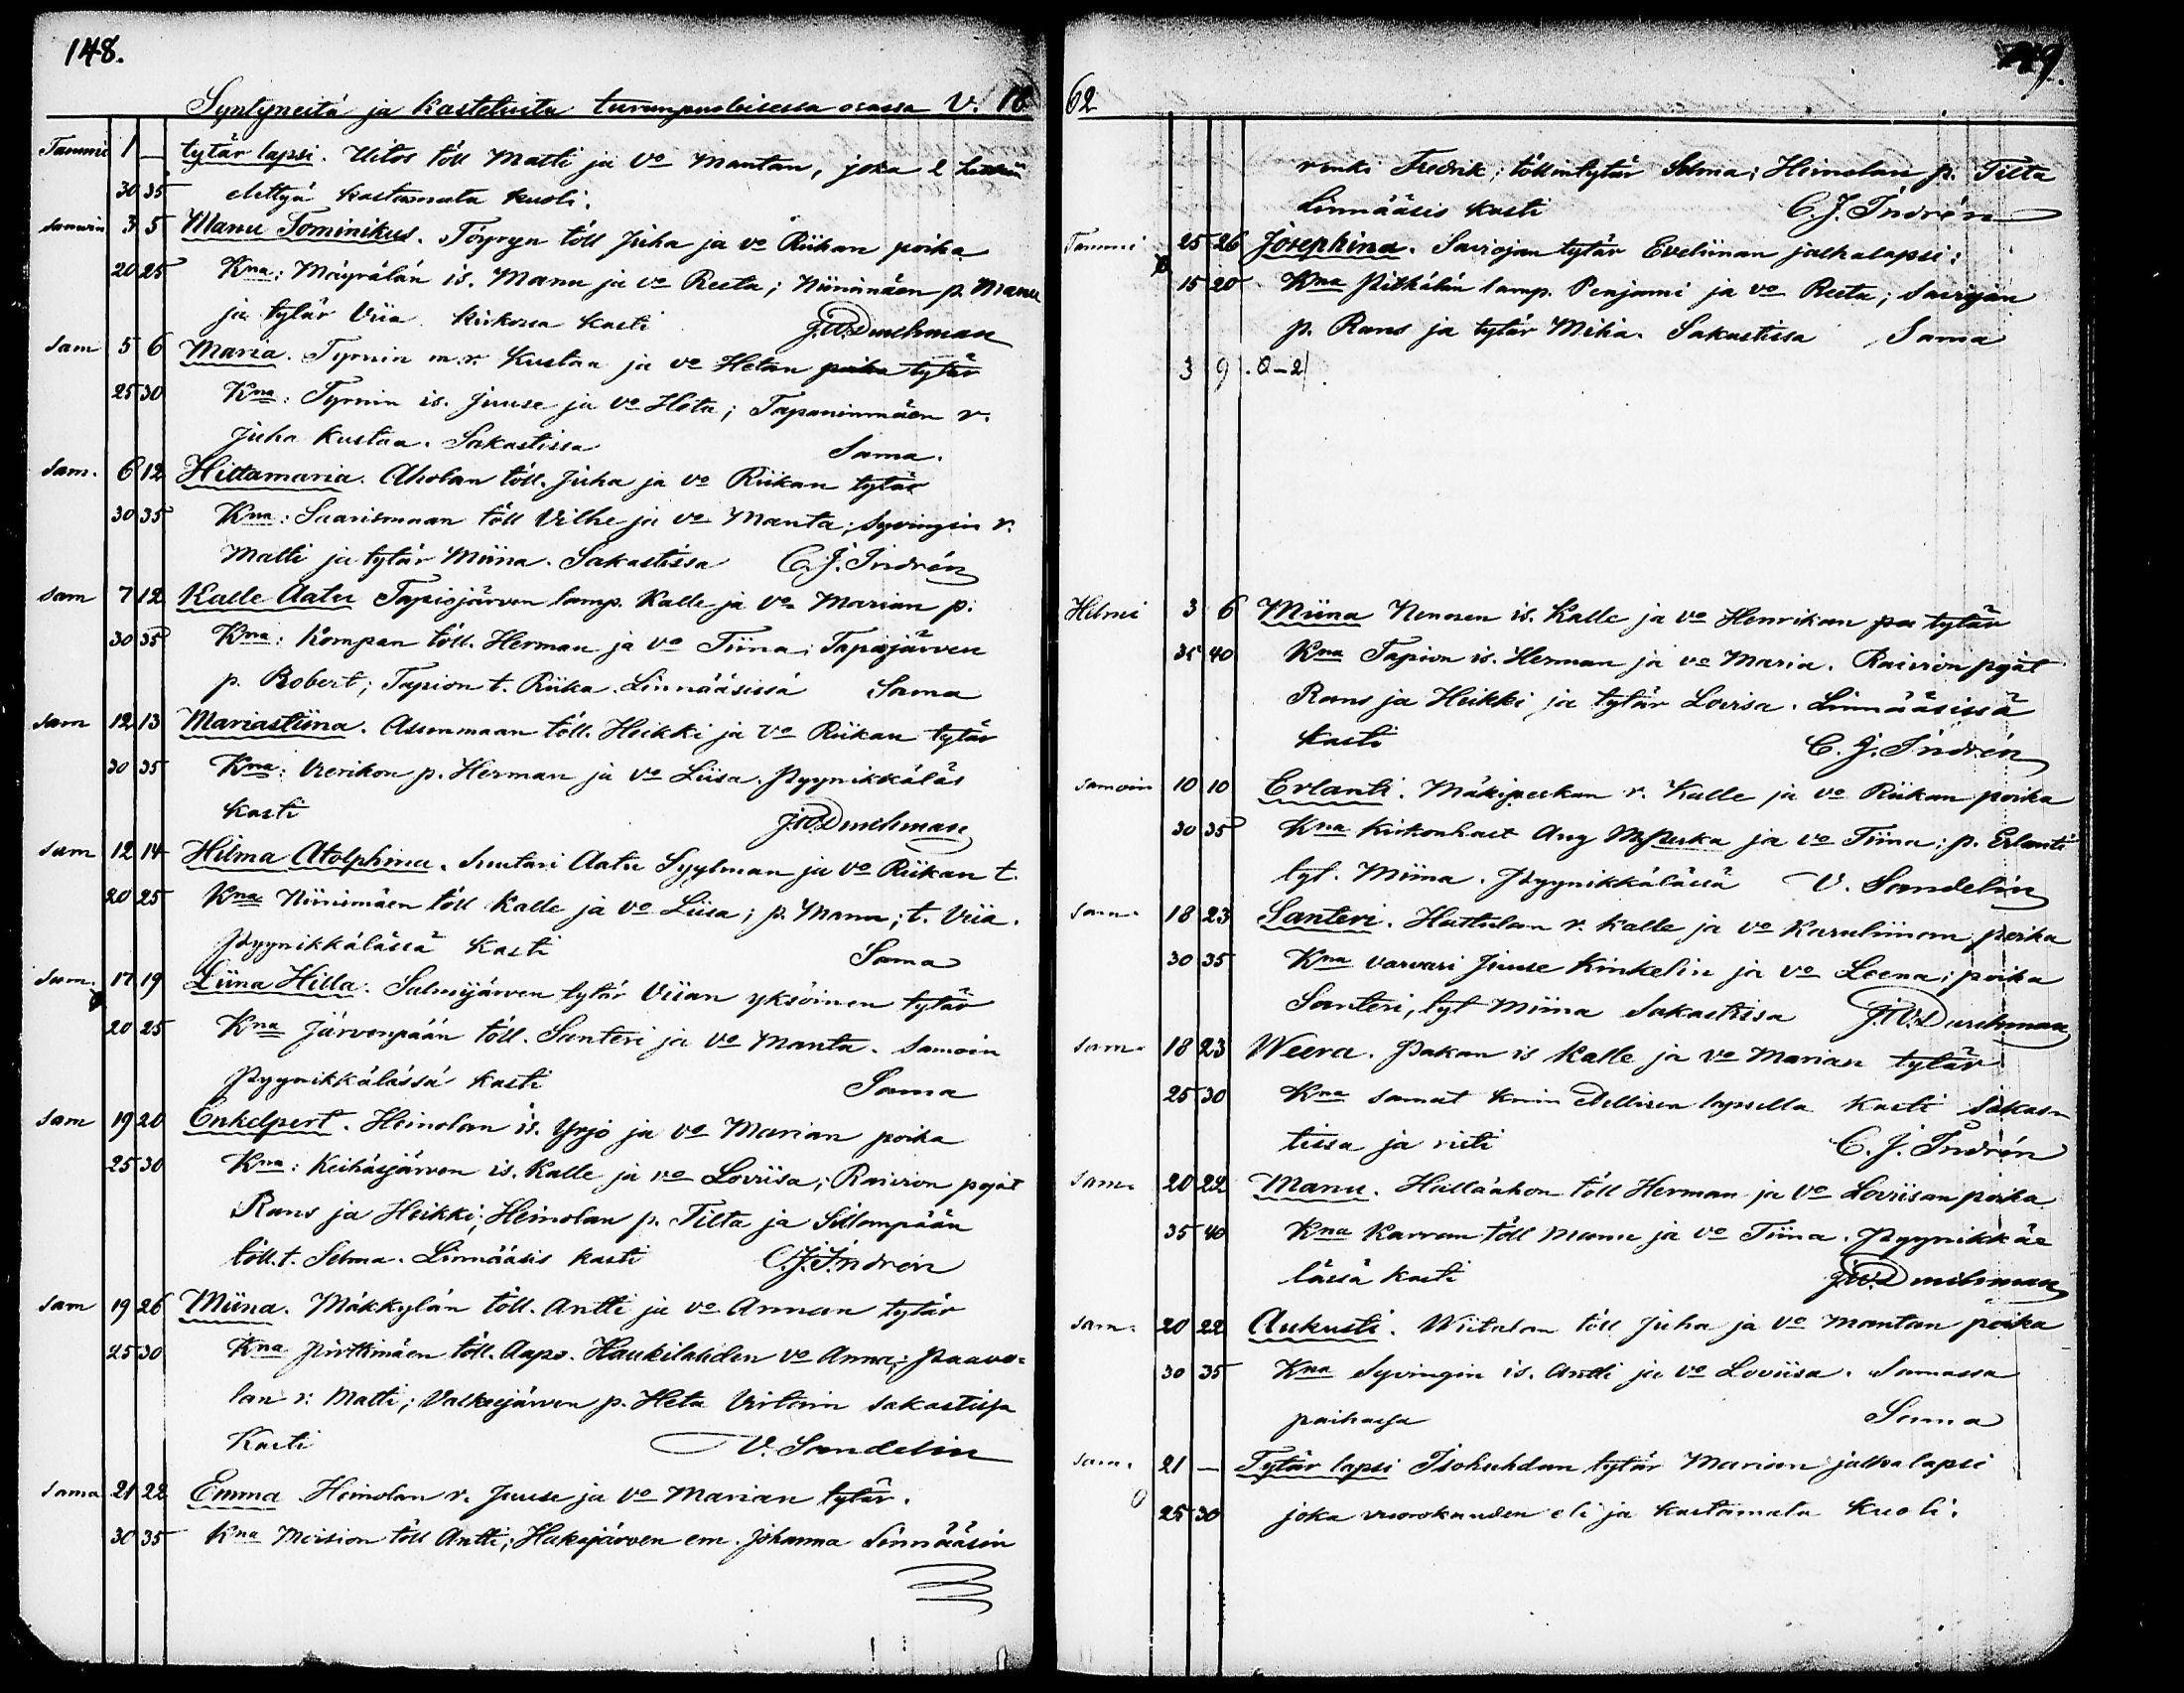 148.
Syntyneitä ja kastetuita turunpuoleisessa osassa V. 18
Tammi 1 — tytär lapsi. Uitos töll Matti ja vo Mantan, joka 2
30 35 elettyä kastamata kuoli.
samoin 3 5 Manu Tominikus. Töyryn töll Juha ja vo Riikan poika
20 25 Kna: Mäyrälän is. Manu ja vo Reeta; Niinimäen p. Manu
ja tytär Viia kirkossa kasti J.W. Durchman
sam 5 6 Maria. Tyrnin m.r. Kustaa ja vo Hetan poika tytär
25 30 Kna: Tyrnin is. Juuse ja vo Heta; Tapaninmäen r.
Juha Kustaa. Sakastissa Sama.
sam. 6 12 Hiltamaria. Aholan töll. Juha ja vo Riikan tytär
30 35 Kna: Saarismaan töll Vilhe ja vo Manta; Syvingin r.
Matti ja tytär Miina. Sakastissa C. J. Indrén
sam 7 12 Kalle Aatu Tapiojärven lamp. Kalle ja vo Marian p.
30 35 Kna: Kompan töll. Herman ja vo Tiina; Tapiojärven
p. Robert; Tapion t. Riika. Linnääsissä Sama
sam 12 13 Mariastiina. Assenmaan töll. Heikki ja vo Riikan tytär
30 35 Kna: Vierikon p. Herman ja vo Liisa. Pyynikkäläs
kasti J.W. Durchman
sam 12 14 Hilma Atolphina. Suutari Aatu Syylman ja vo Riikan t.
20 25 Kna Niinimäen töll Kalle ja vo Liisa; p. Manu; t. Viia.
Pyynikkälässä kasti Sama
sam. 17 19 Liina Hilla. Salmijärven tytär Viian yksöinen tytär
20 25 Kna Järvenpään töll. Santeri ja vo Manta. Samoin
Pyynikkälässä kasti Sama
sam 19 20 Enkelpert. Heinolan is. Yrjö ja vo Marian poika
25 30 Kna: Keihäsjärven is. Kalle ja vo Loviisa; Raivion pojat
Rans ja Heikki; Heinolan p. Tilta ja Sillanpään
töll.t. Selma. Linnääsis kasti C. J. Indrén
sam 19 26 Miina. Mäkkylän töll. Antti ja vo Annan tytär
25 30 Kna Pirttimäen töll. Aapo. Haukilahden vo Anna; Paavo-
lan r. Matti; Valkeejärven p. Heta Virtain sakastissa
Kasti V. Sandelin
sama 21 22 Emma Heinolan r. Juuse ja vo Marian tytär.
30 35 Kna Moision töll Antti; Hakojärven em. Johanna Linnääsin
62
149.
renki Fredrik; töllintytär Selma; Heinolan p. Tilta
Linnääsis kasti C. J. Indrén
Tammi 25 26 Josephina. Saviojan tytär Eveliinan jalkalapsi:
15 20 Kna Pitkälän lamp. Penjami ja vo Reeta; Saviojan
p. Rans ja tytär Miha. Sakastissa Sama
3 9 . 0-2
Helmi 3 6 Miina Nenosen is. Kalle ja vo Henrikan po tytär
35 40 Kna Tapion is. Herman ja vo Maria. Raivion pojat
Rans ja Heikki ja tytär Lovisa. Linnääsissä
kasti C. J. Indrén
samoin 10 10 Erlanti. Mäkipeskan r. Kalle ja vo Riikan poika
30 35 Kna Kirkonhast Aug ja vo Tiina; p. Erlanti
tyt. Miina. Pyynikkälässä V. Sandelin
sam. 18 23 Santeri. Huttulan r. Kalle ja vo Karuliinan poika
30 35 Kna varvari Juuse Kinkelin ja vo Leena; poika
Santeri, tyt Miina Sakastissa J.W. Durchman
sam. 18 23 Weera. Pakan is Kalle ja vo Marian tytär
25 30 Kna samat kuin edellisen lapsella kasti sakas-
tissa ja risti C. J. Indrén
sam. 20 22 Manu. Hallaahon töll Herman ja vo Loviisan poika
35 40 Kna Karran töll Manu ja vo Tiina. Pyynikkä-
lässä kasti J.W. Durchman
sam. 20 22 Aukusti. Wiitalan töll Juha ja vo Mantan poika
30 35 Kna Syvingin is. Antti ja vo Loviisa. Samassa
paikassa Sama
sam. 21 — Tytär lapsi Isohuhdan tytär Marian jalkalapsi
25 30 joka vuorokauden eli ja kastamata kuoli.